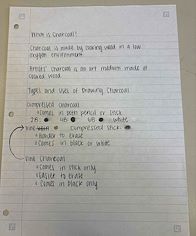 What is Charcoal?
Charcoal is made by burning wood in a low
oxygen environment.
Artists' Charcoal is an art medium made of
burned wood
Types and Uses of Drawing Charcoal
Compressed Charcoal
Comes in both pencil or stick
2B: 4B 6B White
Compressed stick
Harder to erase
Comes in black or white
Vine Charcoal
Comes in stick only
Easier to erase
Comes in black only